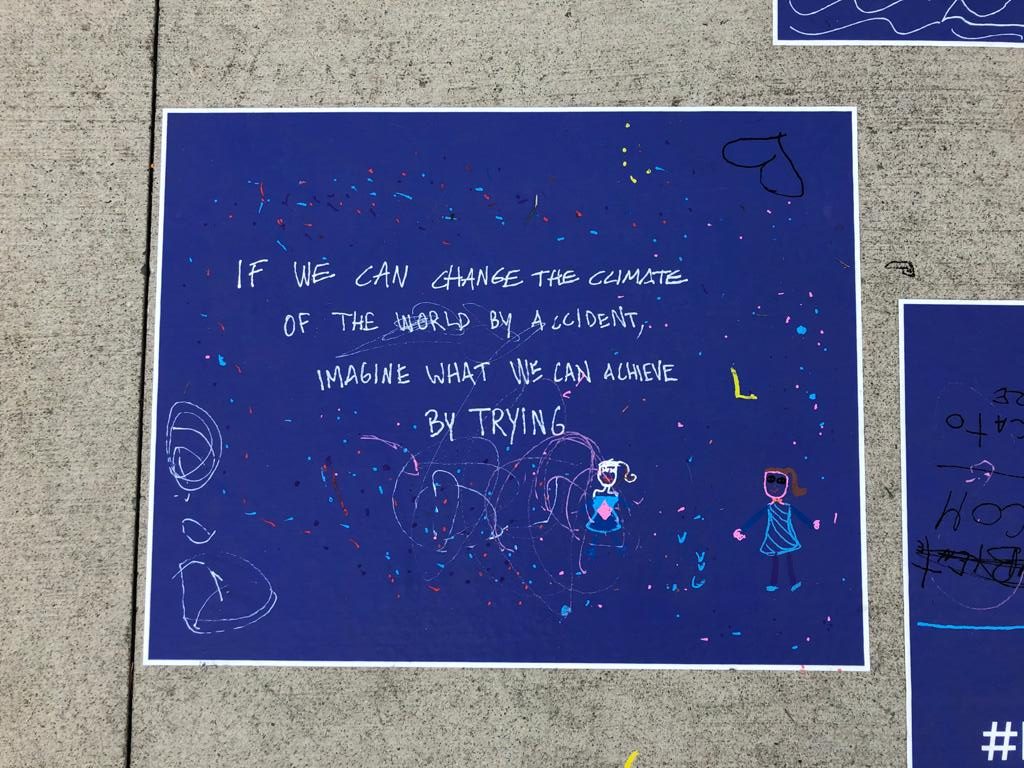 IF WE CAN CHANGE THE CLIMATE
OF THE WORLD BY ACCIDENT,
IMAGINE WHAT WE CAN ACHIEVE
BY TRYING
L
#